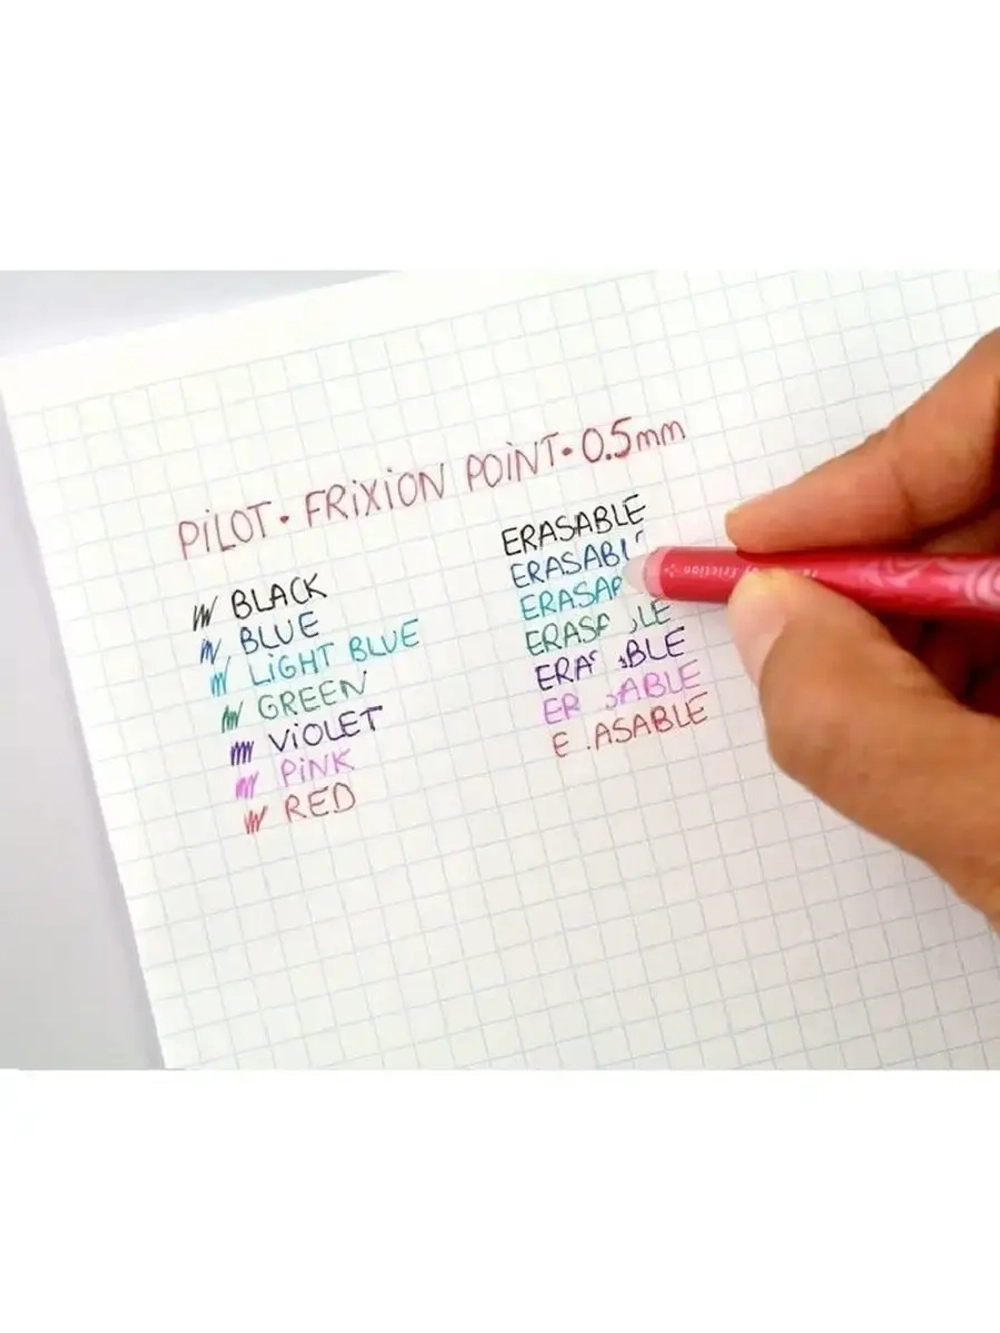 PiLOT · FRiXiON POiNT · 0.5mm
BLACK
BLUE
LiGHT BLUE
GREEN
ViOLET
PiNK
RED
ERASABLE
ERASABL
ERASAB
ERASA LE
ERA ABLE
ER ABLE
E ASABLE
by friction